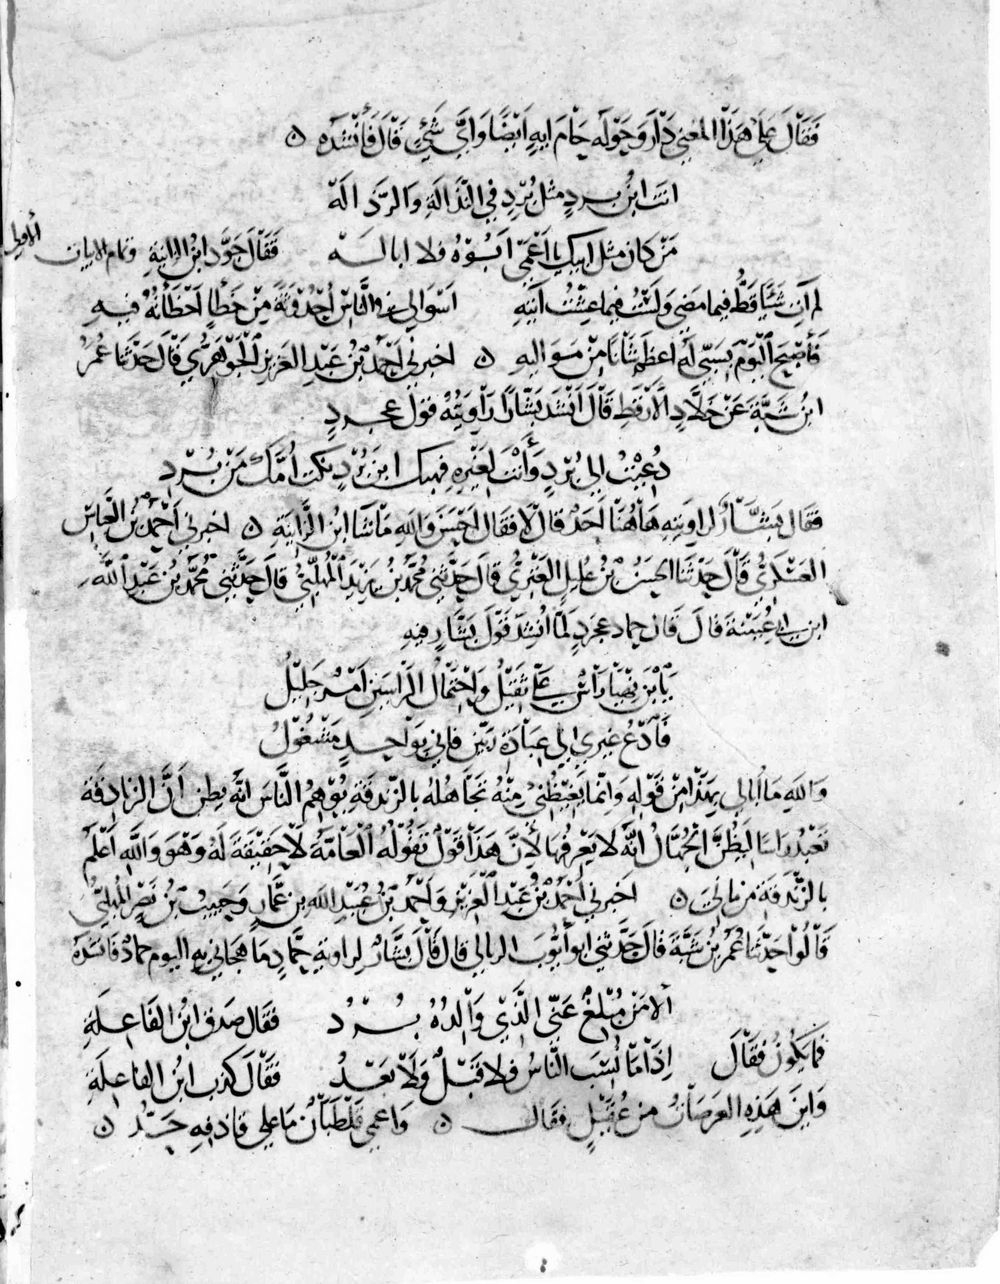 فَقَالَ عَلَى هَذَا المعنى دَارَ وَحَوْلَه حَامَ ايه أَيضًا وَأَيّ شَيْءٍ قَالَ فَأَنْشَدَه ۝
انت ابنُ بردٍ مثل بُرْدٍ في النَّذَالَةِ وَالرَّذَالَهْ
مَنْ كان مثل ابيك يا أَعْمَى ابُوْهُ فلا ابا لَهْ فَقَالَ جَوَّد ابنُ الزانيةِ وتمام الابيات الأولى
لم آتِ شَيْئًا قَطُّ فيما مضى وَلَسْتُ فيما عِشْتُ آتِيهِ اسْوَا لي في النَّاسِ أُحْدُوثَةً مِنْ خَطْإٍ أَخْطَأْتُهُ فيهِ
فَأَصْبَحَ الْيَوْمَ بِسَبِّي لَهُ اعظَمُ شَانًا مِنْ مَوَالِيهِ ۝ اخبرني أَحْمَدُ بْنُ عَبْدِ العَزِيزِ الْجَوْهَرِيُّ قَالَ حَدَّثَنَا عُمَرُ
ابنُ شَبَّةَ عَنْ خَلَّادٍ الأَرْقَطِ قَالَ أَنْشَدَ بَشَّارًا رَاوِيَتُهُ قول عجردٍ
دُعِيْتُ إلى بُرْدٍ وَأَنْتَ لِغَيْرِهِ فهبك ابنَ بُرْدٍ نكت أُمَّكَ مَنْ بُرْدِ
فقال بَشَّارٌ لراويته هَاهُنَا أَحَدٌ قال لا فقال أَحْسَنَ وَاللهِ مَا شَا ابنُ الزَّانِيَةِ ۝ اخبرني أَحْمَدُ بْنُ العَبَّاسِ
العَسْكَرِيُّ قَالَ حَدَّثَنَا الحَسَنُ بْنُ عُلَيلٍ العَنَزِيُّ قال حَدَّثَنِي مُحَمَّدُ بْنُ يَزِيْدَ الْمُهَلَّبِيُّ قال حَدَّثَنِي مُحَمَّدُ بْنُ عَبْدِ اللهِ
ابن ابي عُيَيْنَةَ قَالَ قال حماد عجردٍ لَمَّا أُنْشِدَ قَوْلَ بَشَّارٍ فيهِ
يَا ابْنَ نِهْيَا رَاسٌ عَلَيَّ ثَقِيْلُ وَاحْتِمَالُ الرَّاسَيْنِ أَمْرٌ جَلِيْلُ
فَادْعُ غيري إلى عِبَادَة رَبَّيْن فاني بِوَاحِدٍ مَشْغُوْلُ
وَاللهِ مَا أُبَالي بِهَذَا مِنْ قَوْلِهِ وَانما يَغِيْظُنِي مِنْهُ تَجَاهُلُهُ بالزَّنْدَقَةِ يُوْهِمُ النَّاسَ أنَّهُ يظن أَنَّ الزَّنَادِقَةَ
تَعْبُدُ رَاسًا لِيَظُنَّ الْجُهَّالُ أنَّهُ لا يَعْرِفُهَا لأَنَّ هَذَا قَوْلٌ تَقُوْلُهُ الْعَامَّةُ لا حَقِيْقَةَ لَهُ وَهُوَ وَاللَّهِ أَعْلَمُ
بالزَّنْدَقَةِ من مَانِيَ ۝ اخبرني أَحْمَدُ بْنُ عَبْدِ الْعَزِيْزِ وَأَحْمَدُ بْنُ عُبَيْدِ اللهِ بن عَمَّارٍ وَحَبِيْبُ بْنُ نَصْرٍ المُهَلَّبِيُّ
قَالُوا حَدَّثَنَا عُمَرُ بْنُ شَبَّةَ قال حَدَّثَنِي ابو أَيُّوبَ الزبالي قال قَالَ بَشَّارٌ لِرَاوِيَةِ حَمَّادٍ مَا هَجَاني به اليوم حمادٌ فَانْشَدَهُ
ألا مَنْ مُبْلِغٌ عَنِّي الَّذِي وَالِدُهُ بُرْدُ فَقَال صَدَقَ ابنُ الفَاعِلَةِ
فما يكُونُ فَقَالَ إِذَا مَا نُسِبَ النَّاسُ فلا قَبْلُ وَلَا بَعْدُ فَقَالَ كذب ابنُ الفَاعِلَةِ
وَايْنَ هَذِهِ العَرَصَاتُ من عُقَيْلٍ فقال ۝ وَاعمى قَلْطَبَانٌ مَا على قَاذِفِهِ حَدُّ ۝